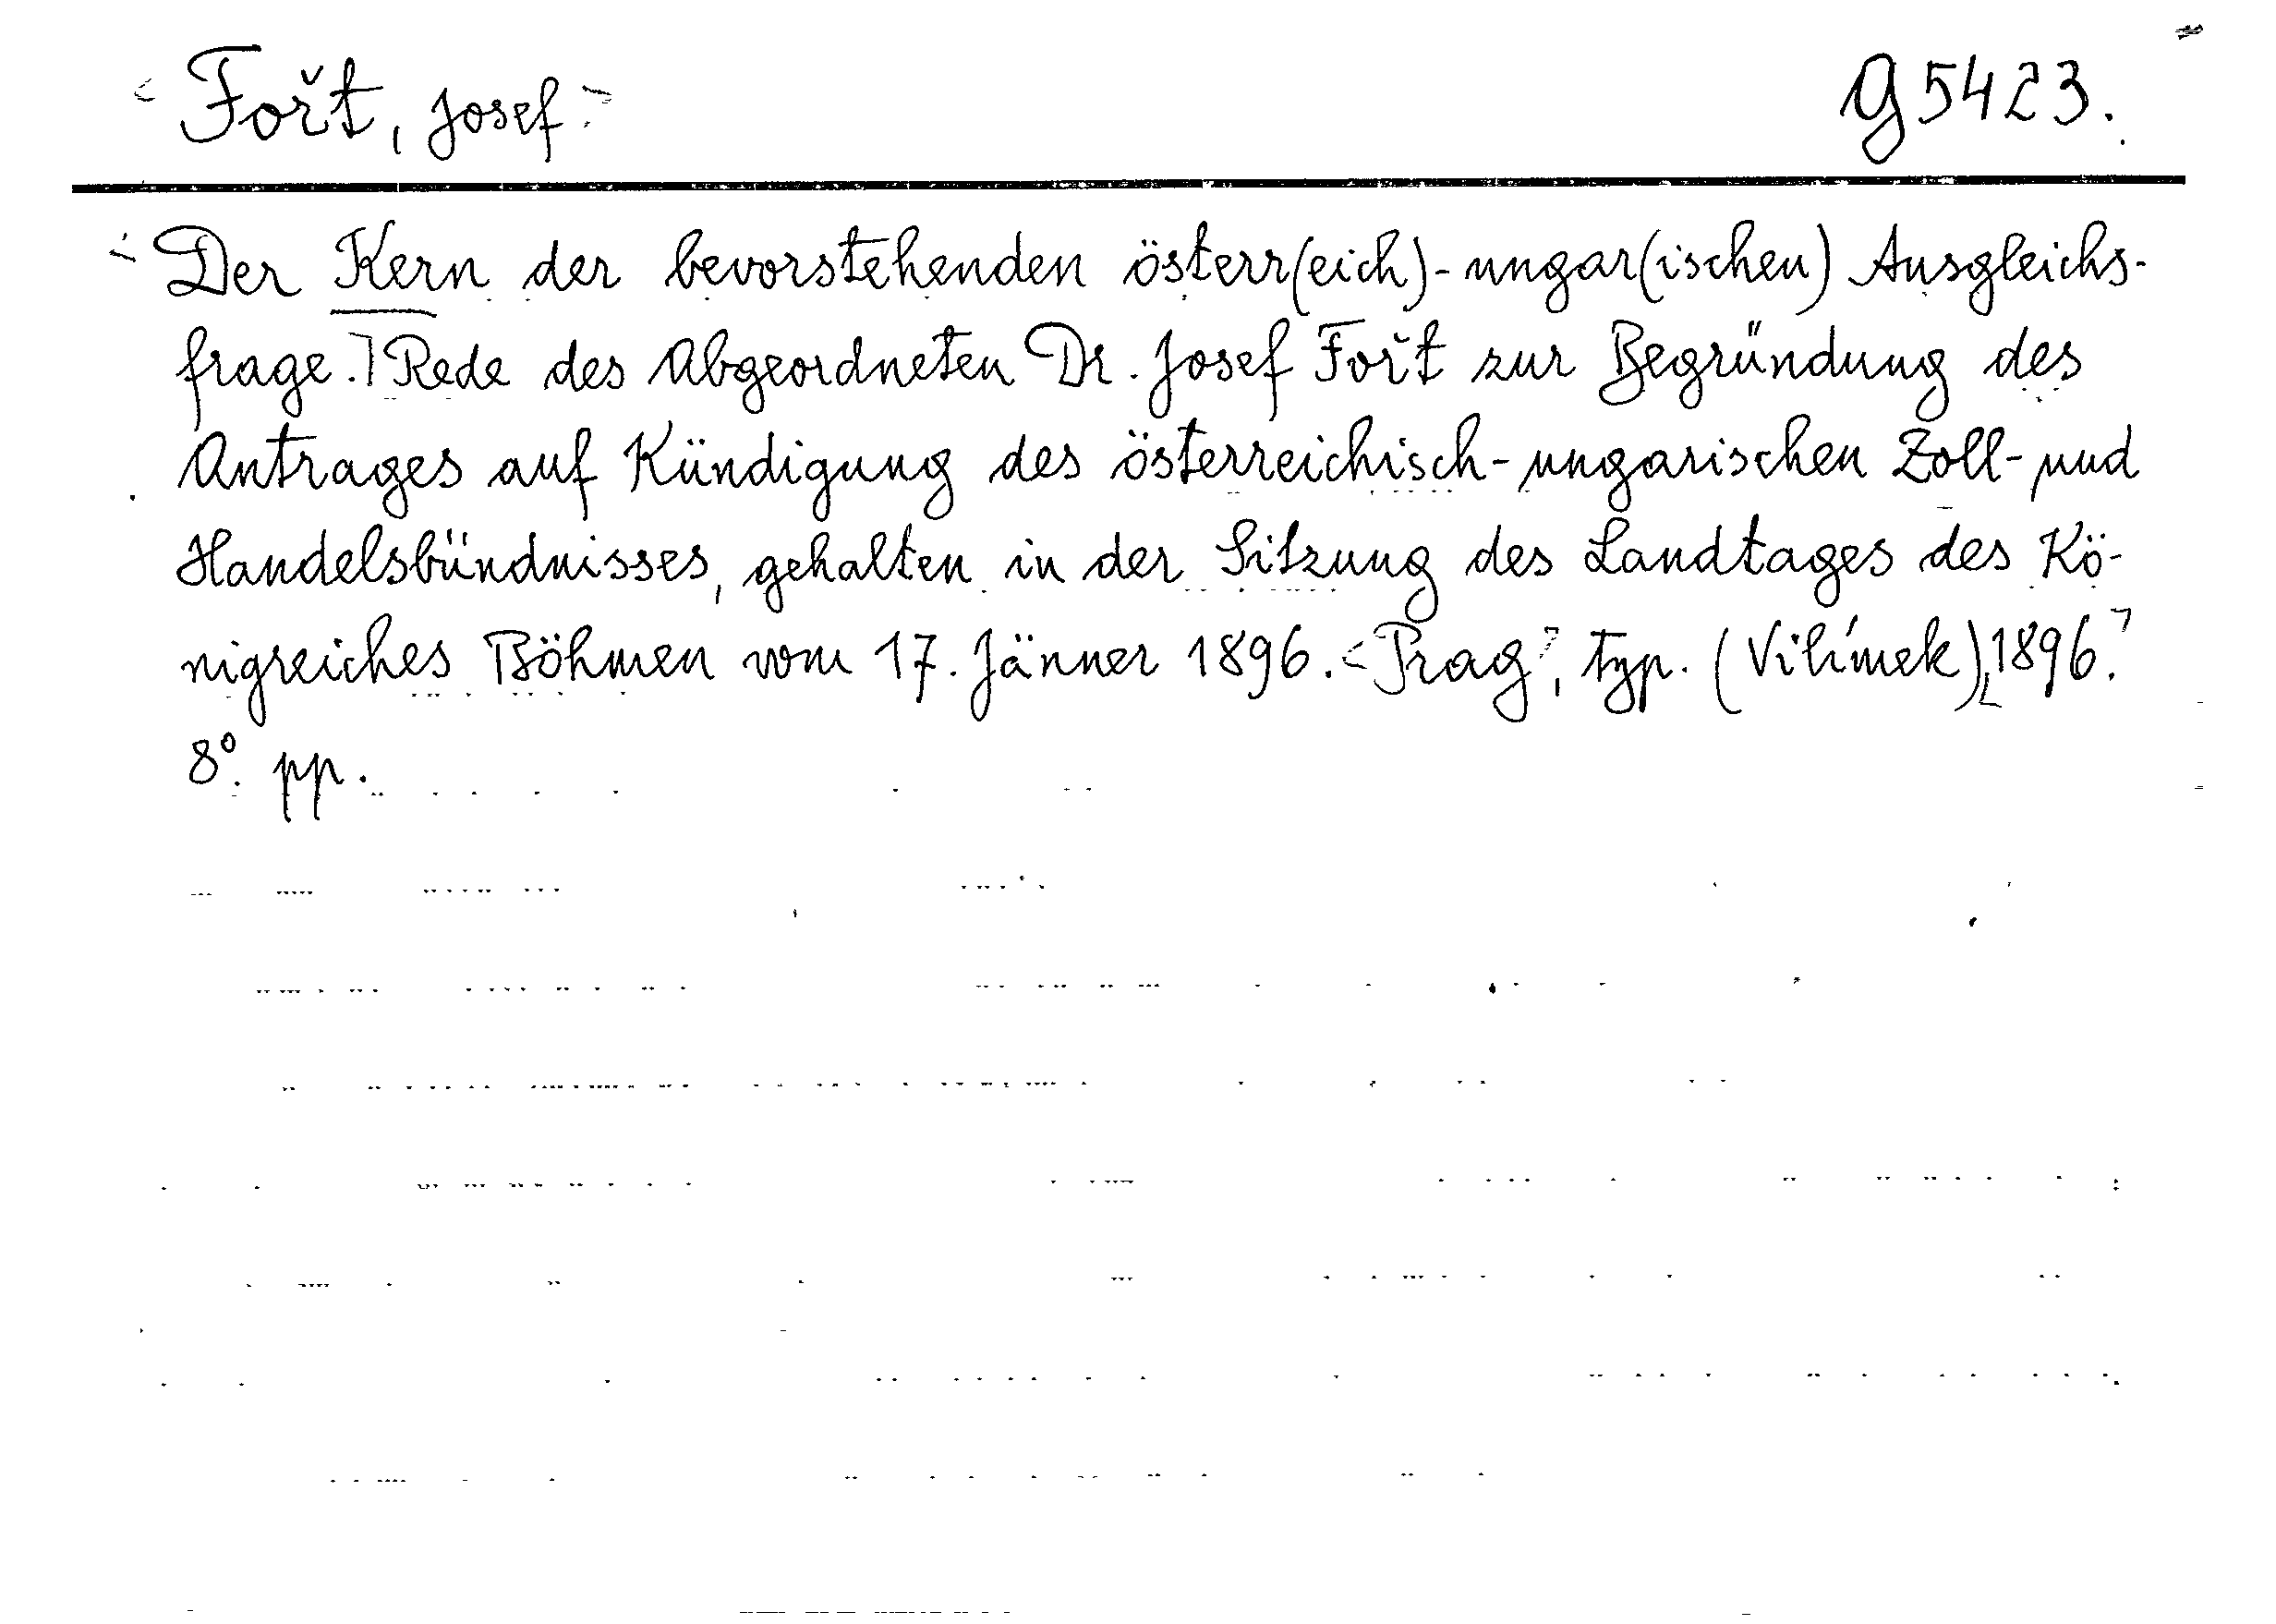 Fořt, Josef
g 5423.
Der Kern der bevorstehenden österr(eich)-ungar(ischen) Ausgleichs-
frage.] Rede des Abgeordneten Dr. Josef Fořt zur Begründung des
Antrages auf Kündigung des österreichisch-ungarischen Zoll- und
Handelsbündnisses, gehalten in der Sitzung des Landtages des Kö-
nigreiches Böhmen vom 17. Jänner 1896. Prag, typ. (Vilímek), 1896.
8º. pp.